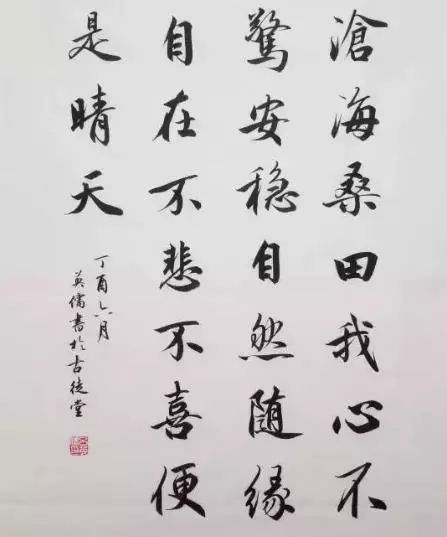 滄海桑田我心不
驚安穏自然随縁
自在不悲不喜便
是晴天
丁酉六月
英儒書於古徒堂